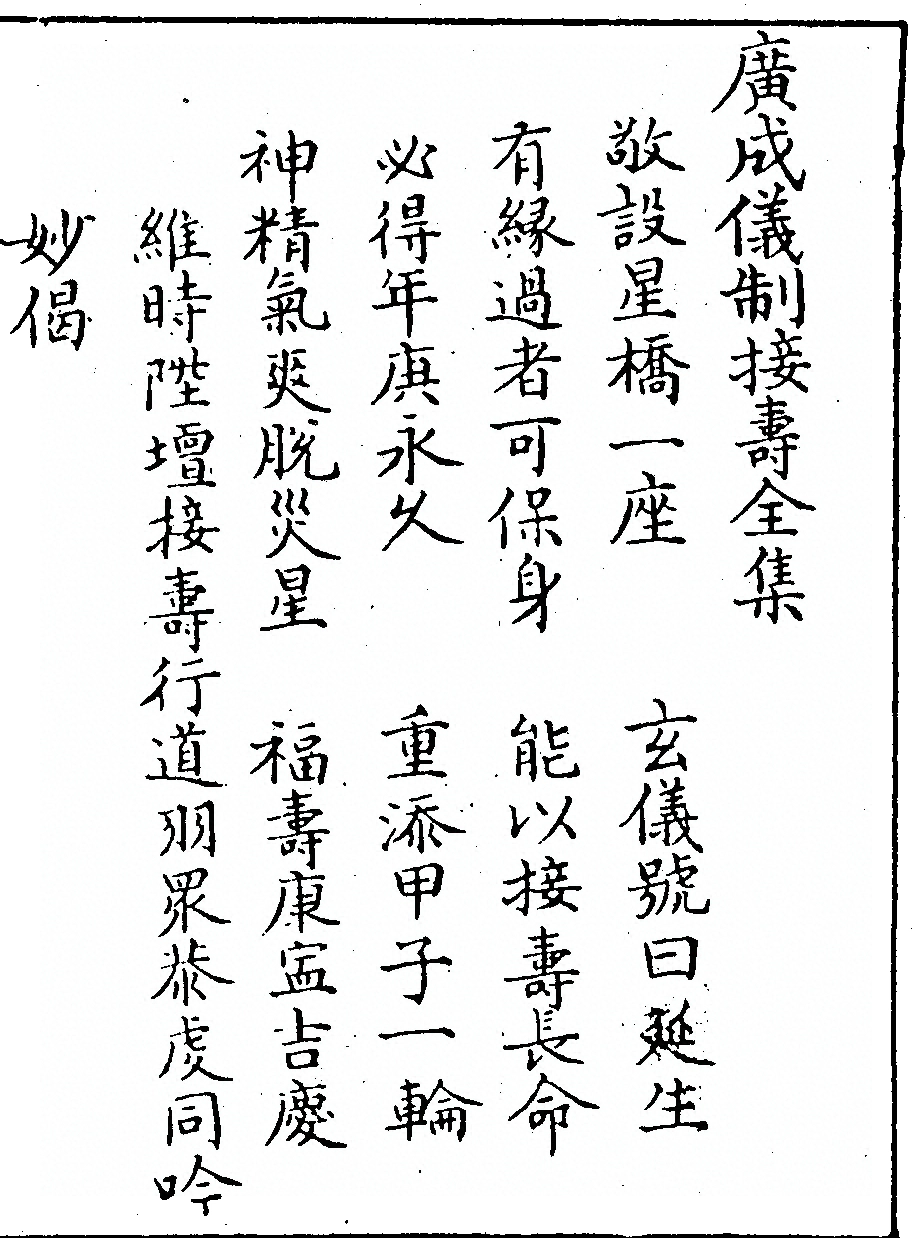 廣成儀制接壽全集
敬設星橋一座　玄儀號曰延生
有緣過者可保身　能以接壽長命
必得年庚永久　重添甲子一輪
神精氣爽脫災星　福壽康寍吉慶
維時陞壇接壽行道羽眾恭虔同吟
妙偈